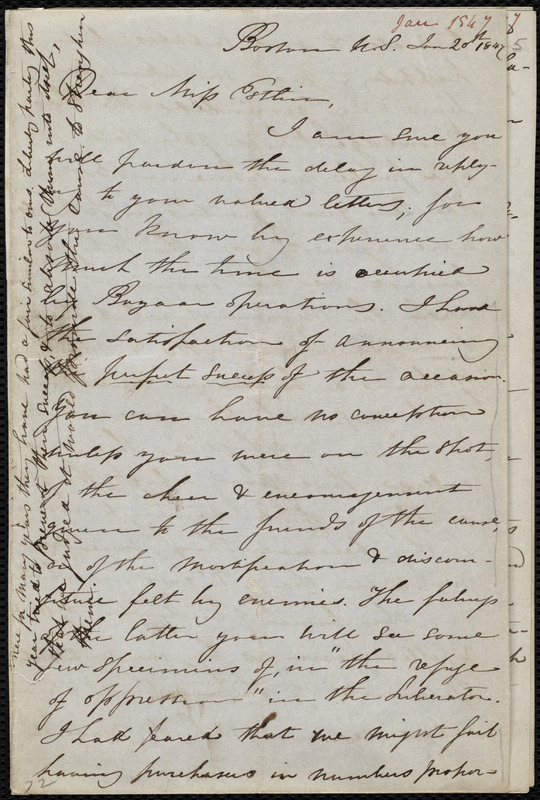 Jan 1847
Boston U.S. Jan 20th 1847
Dear Miss Estlin,
I am sure you
will pardon the delay in reply-
to your valued letters; for
you know by experience how
much the time is occupied
by Bazaar operations. I have
the satisfaction of announcing
the perfect success of the occasion.
You can have no conception
unless you were on the spot,
of the cheer & encouragement
given to the friends of the cause,
or of the mortification & discom-
fiture felt by enemies. The feelings
of the latter you will see some
few specimens of, in "the refuge
of oppression" in the Liberator.
I had feared that we might fail
having purchasers in numbers propor-
here for many years they have had a fair similar to ours. Liberty party this
year tried to prevent their success, & to absorb them into itself,
that we judged it would promote the cause to strengthen
them.